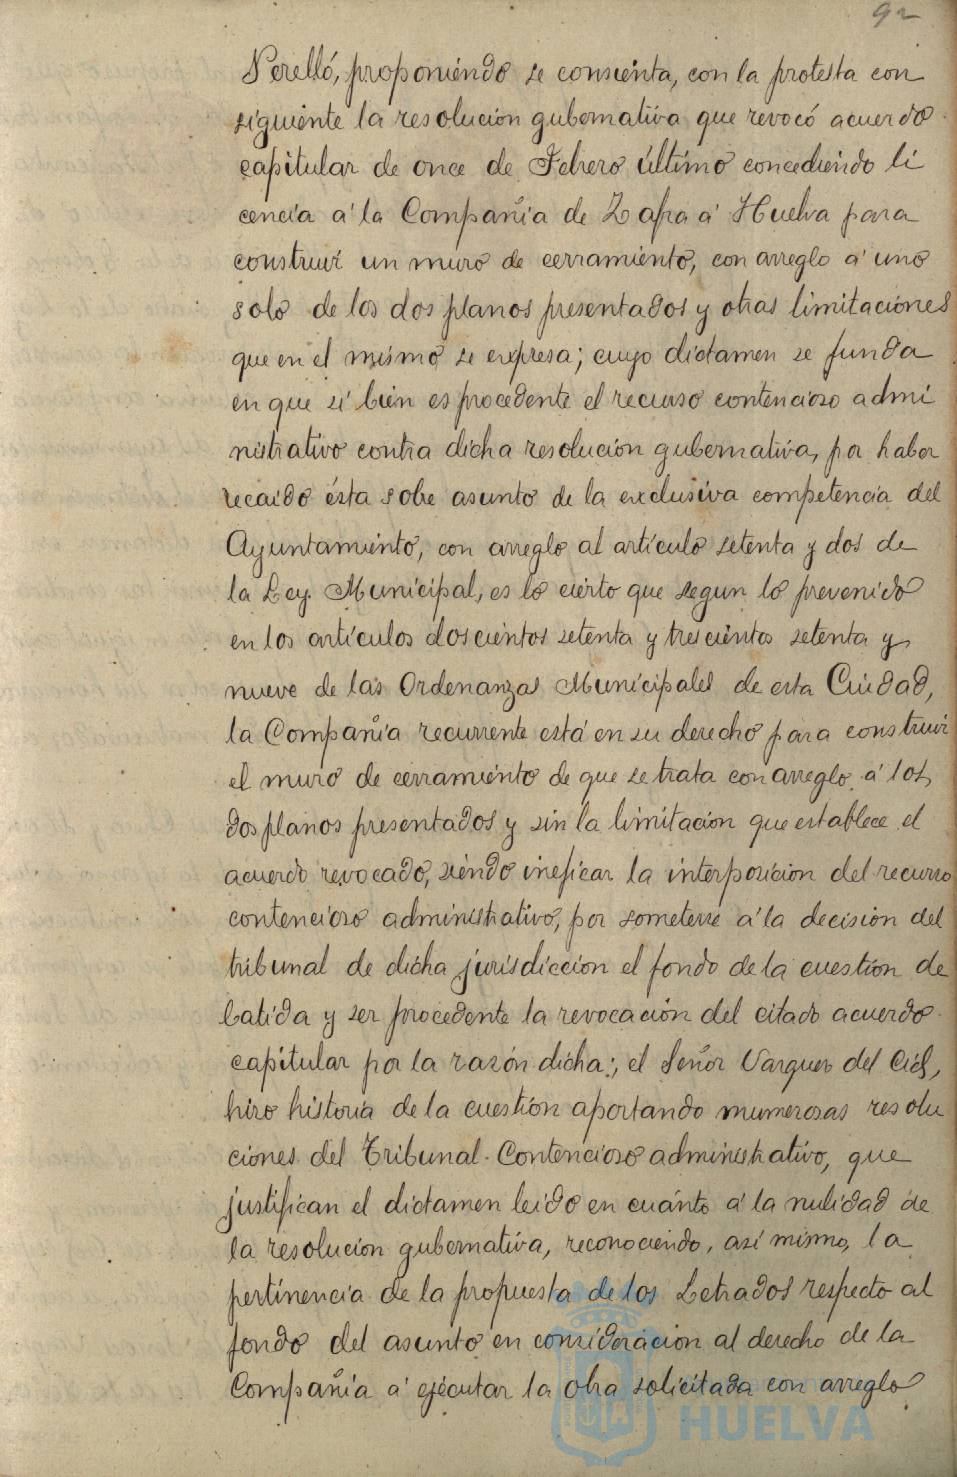 92
Perelló, proponiendo se consienta, con la protesta con
siguiente la resolucion gubernativa que revocó acuerdo
capitular de once de Febrero último concediendo li
cencia á la Compañia de Zafra á Huelva para
construir un muro de cerramiento, con arreglo á uno
solo de los dos planos presentados y otras limitaciones
que en el mismo se expresa; cuyo dictamen se funda
en que si bien es procedente el recurso contencioso admi
nistrativo contra dicha resolucion gubernativa, por haber
recaido ésta sobre asunto de la exclusiva competencia del
Ayuntamiento, con arreglo al artículo setenta y dos de
la Ley Municipal, es lo cierto que segun lo prevenido
en los artículos doscientos setenta y trescientos setenta y
nueve de las Ordenanzas Municipales de esta Ciudad,
la Compañia recurrente está en su derecho para construir
el muro de cerramiento de que se trata con arreglo á los
dos planos presentados y sin la limitacion que establece el
acuerdo revocado, siendo ineficaz la interposicion del recurso
contencioso administrativo, por someterse á la decision del
tribunal de dicha jurisdiccion el fondo de la cuestion de
batida y ser procedente la revocación del citado acuerdo
capitular por la razón dicha; el Señor Vazquez del Cid,
hizo historia de la cuestion aportando numerosas resolu
ciones del Tribunal Contencioso administrativo, que
justifican el dictamen leido en cuánto á la nulidad de
la resolucion gubernativa, reconociendo, así mismo, la
pertinencia de la propuesta de los Letrados respecto al
fondo del asunto en consideracion al derecho de la
Compañia á ejecutar la obra solicitada con arreglo
HUELVA